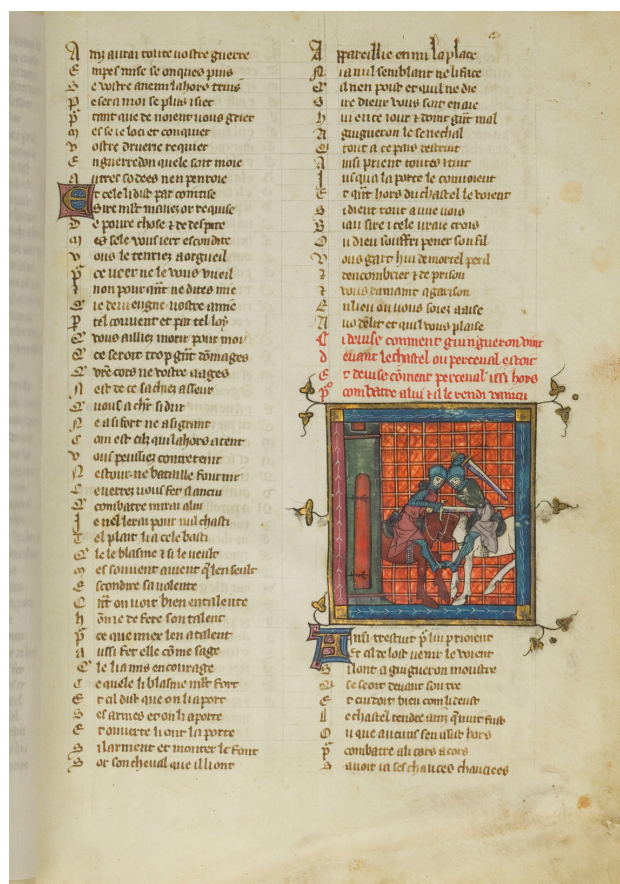 A inz aurai toute vostre guerre
E mpes mise se onques puis
S e vostre anemi lahors truis
P e sera moi se plus i siet
P tant que de noient vous griet
M es se ie loci et conquier
V ostre druerie requier
E nguerredon quele soit moie
A utres sodees nen penroie
E t cele li dist par cointise
S ire mlt mavez or requise
D e poure chose z de despite
M es se le vous iert escondite
V ous le tenriez a orgueil
P ce veer ne le vous vueil
E non pour qnt ne dites mie
Q ie deviengne vostre amie
P tel couvent et par tel loy
Q vous ailliez morir pour moi
Q ce seroit trop gnt domages
Q vre cors ne vostre aages
N est de ce sachiez asseur
Q vous a chr si dur
N e a si fort ne a si grant
C om est cilz qui lahors atent
V ous peussiez contretenir
N estour ne bataille fournir
C e verrez vous fet il ancui
Q combatre mirai a lui
J e nel lerai pour nul chasti
T el plait li a cele basti
Q le le blasme z si le veult
M es souvent avient q len seult
E scondire sa volente
Q nt on voit bien entalente
H ome de fere son talent
P ce que miex len a talent
A ussi fet elle come sage
Q le li a mis en courage
C e quele li blasme mlt fort
E t cil dist que on li aport
S es armes et on li aporte
E t ouverte li ont la porte
S il arment et monter le font
S or son cheval que il li ont
A ppareillie enmi la place
N i a nul semblant ne li face
Q il nen poist et qui ne die
S ire dieux vous soit en aie
H ui en ce iour z doint gnt mal
A guigueron le seneschal
Q tout a ce pais destruit
A insi prient toutes z tuit
J usqua la porte le convoient
E t qnt hors du chastel le voient
S i dient tout a une vois
B iau sire icele vraie crois
O u dieu souffri pener son fil
V ous gart hui de mortel peril
Z dencombrier z de prison
Z vous ramaint a garison
E n lieu ou vous soiez a aise
A vo delit et qui vous plaise
C i devise comment guigueron vint
D evant le chastel ou perceval estoit
E t devise coment perceval issi hors
P o combatre a lui z il le rendi vaincu
A insi trestuit p lui prioient
E t cil de lost venir le voient
S i lont a guigueron moustre
Q se seoit devant son tre
E t cuidoit bien com li deust
L e chastel rendre ainz q nuit fust
O u que aucuns sen issist hors
P combatre a li cors a cors
S avoit ia ses chauces chauciees